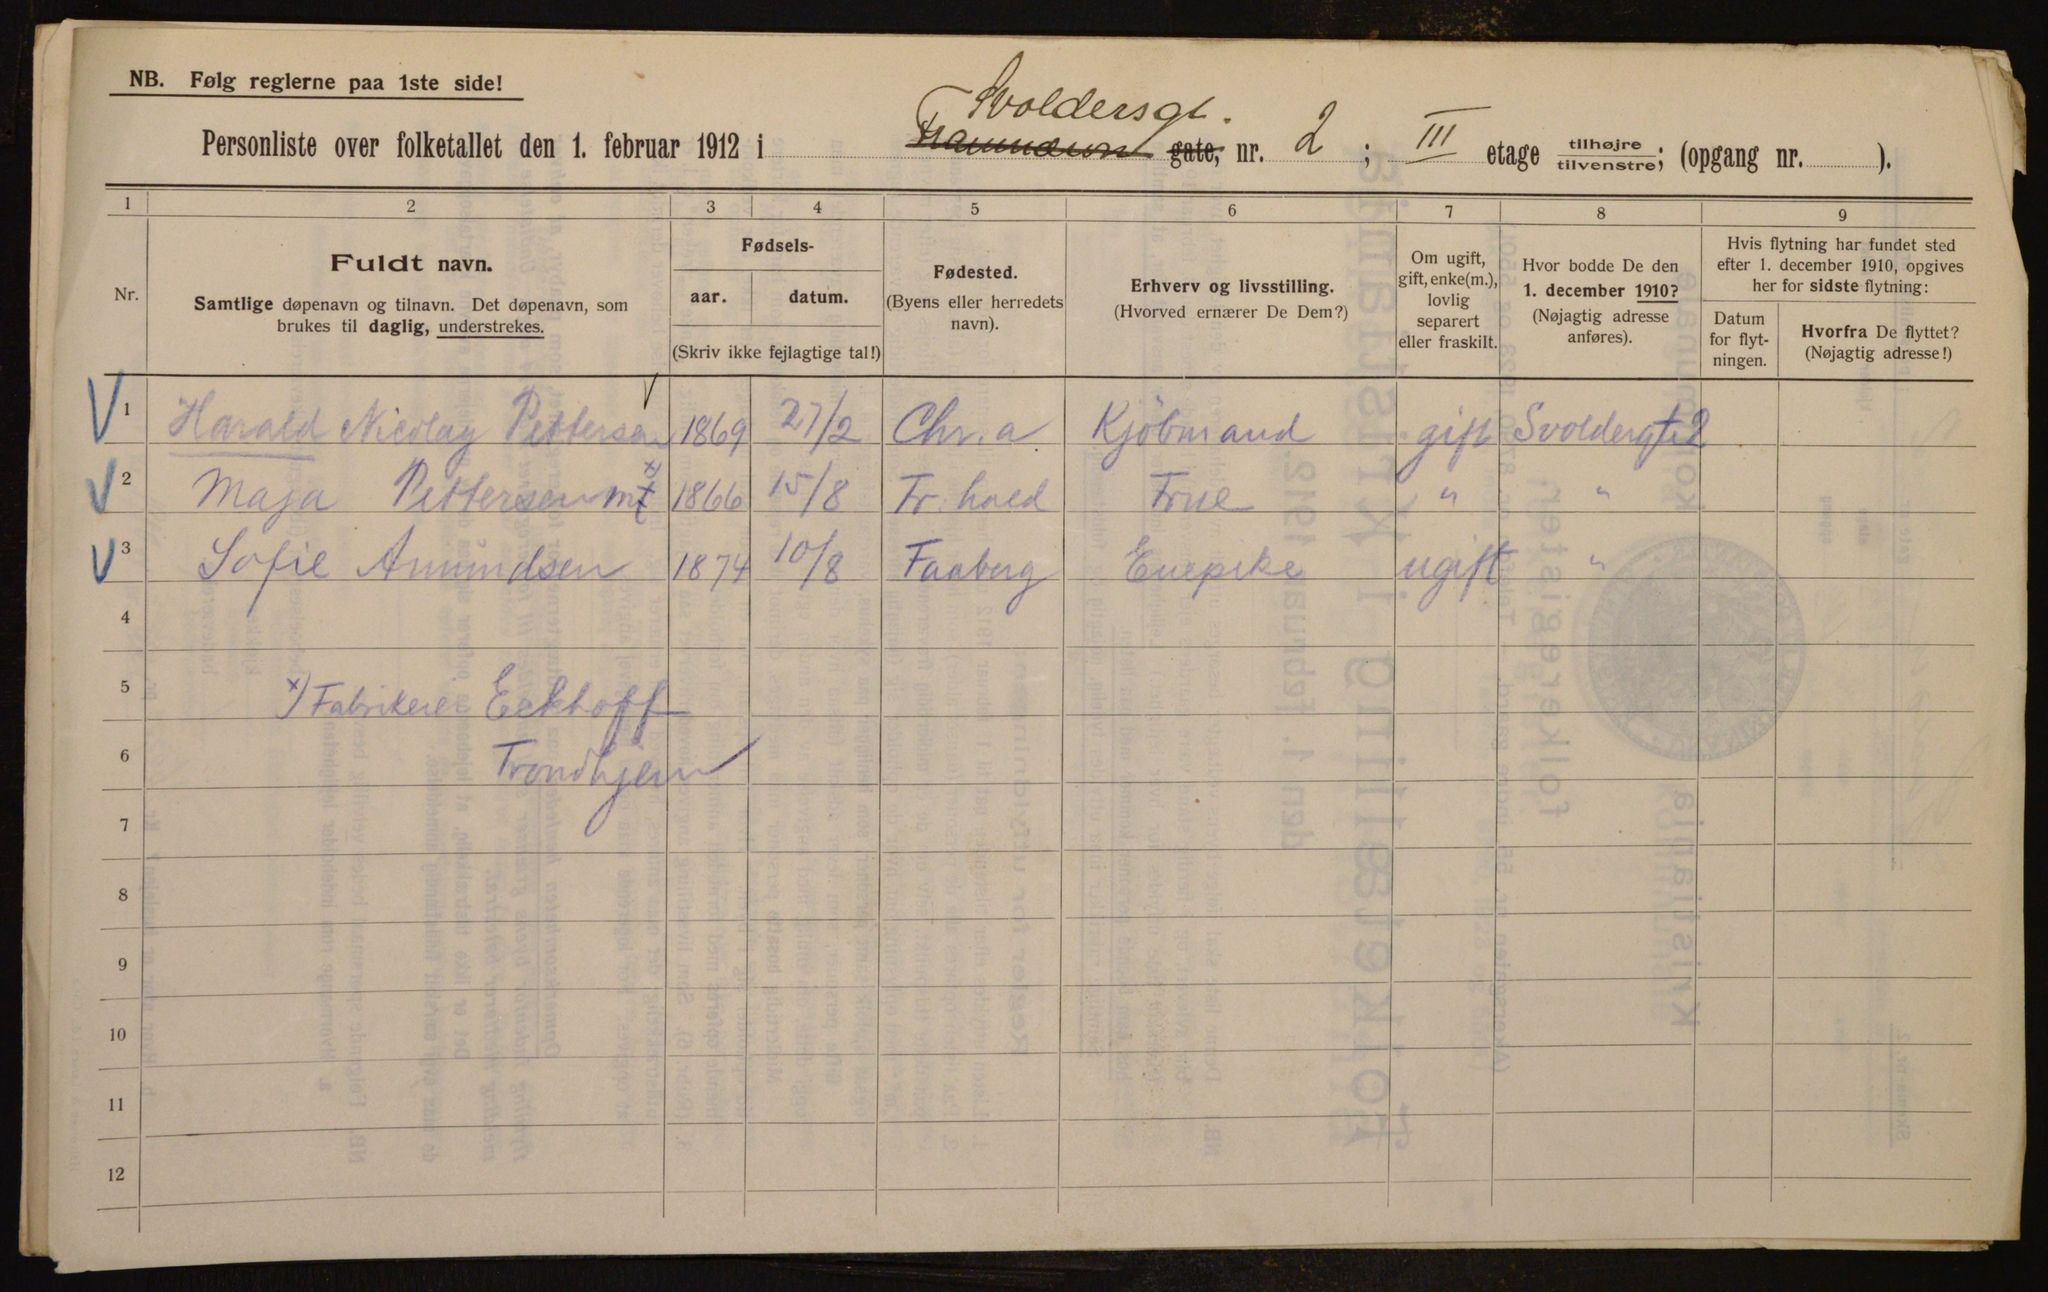 NB. Følg reglerne paa 1ste side!
Svoldersgt.
Personliste over folketallet den 1. februar 1912 i gate, nr. 2 ; III etage tilhøjre tilvenstre; (opgang nr. ).
1 2 3 4 5 6 7 8 9
Nr.
Fuldt navn.
Samtlige døpenavn og tilnavn. Det døpenavn, som
brukes til daglig, understrekes.
Fødsels-
aar. datum.
(Skriv ikke fejlagtige tal!)
Fødested.
(Byens eller herredets
navn).
Erhverv og livsstilling.
(Hvorved ernærer De Dem?)
Om ugift,
gift, enke(m.),
lovlig
separert
eller fraskilt.
Hvor bodde De den
1. december 1910?
(Nøjagtig adresse
anføres).
Hvis flytning har fundet sted
efter 1. december 1910, opgives
her for sidste flytning:
Datum
for flyt-
ningen.
Hvorfra De flyttet?
(Nøjagtig adresse!)
V 1 Harald Nicolay Pettersen V 1869 27/2 Chr.a Kjöbmand gift Svoldergt 2
V 2 Maja Pettersen x) 1866 15/8 Fr.hald Frue " "
V 3 Sofie Amundsen 1874 10/8 Faaberg Enepike ugift "
4
5 x) Fabrikeier Eckhoff
6 Trondhjem
7
8
9
10
11
12